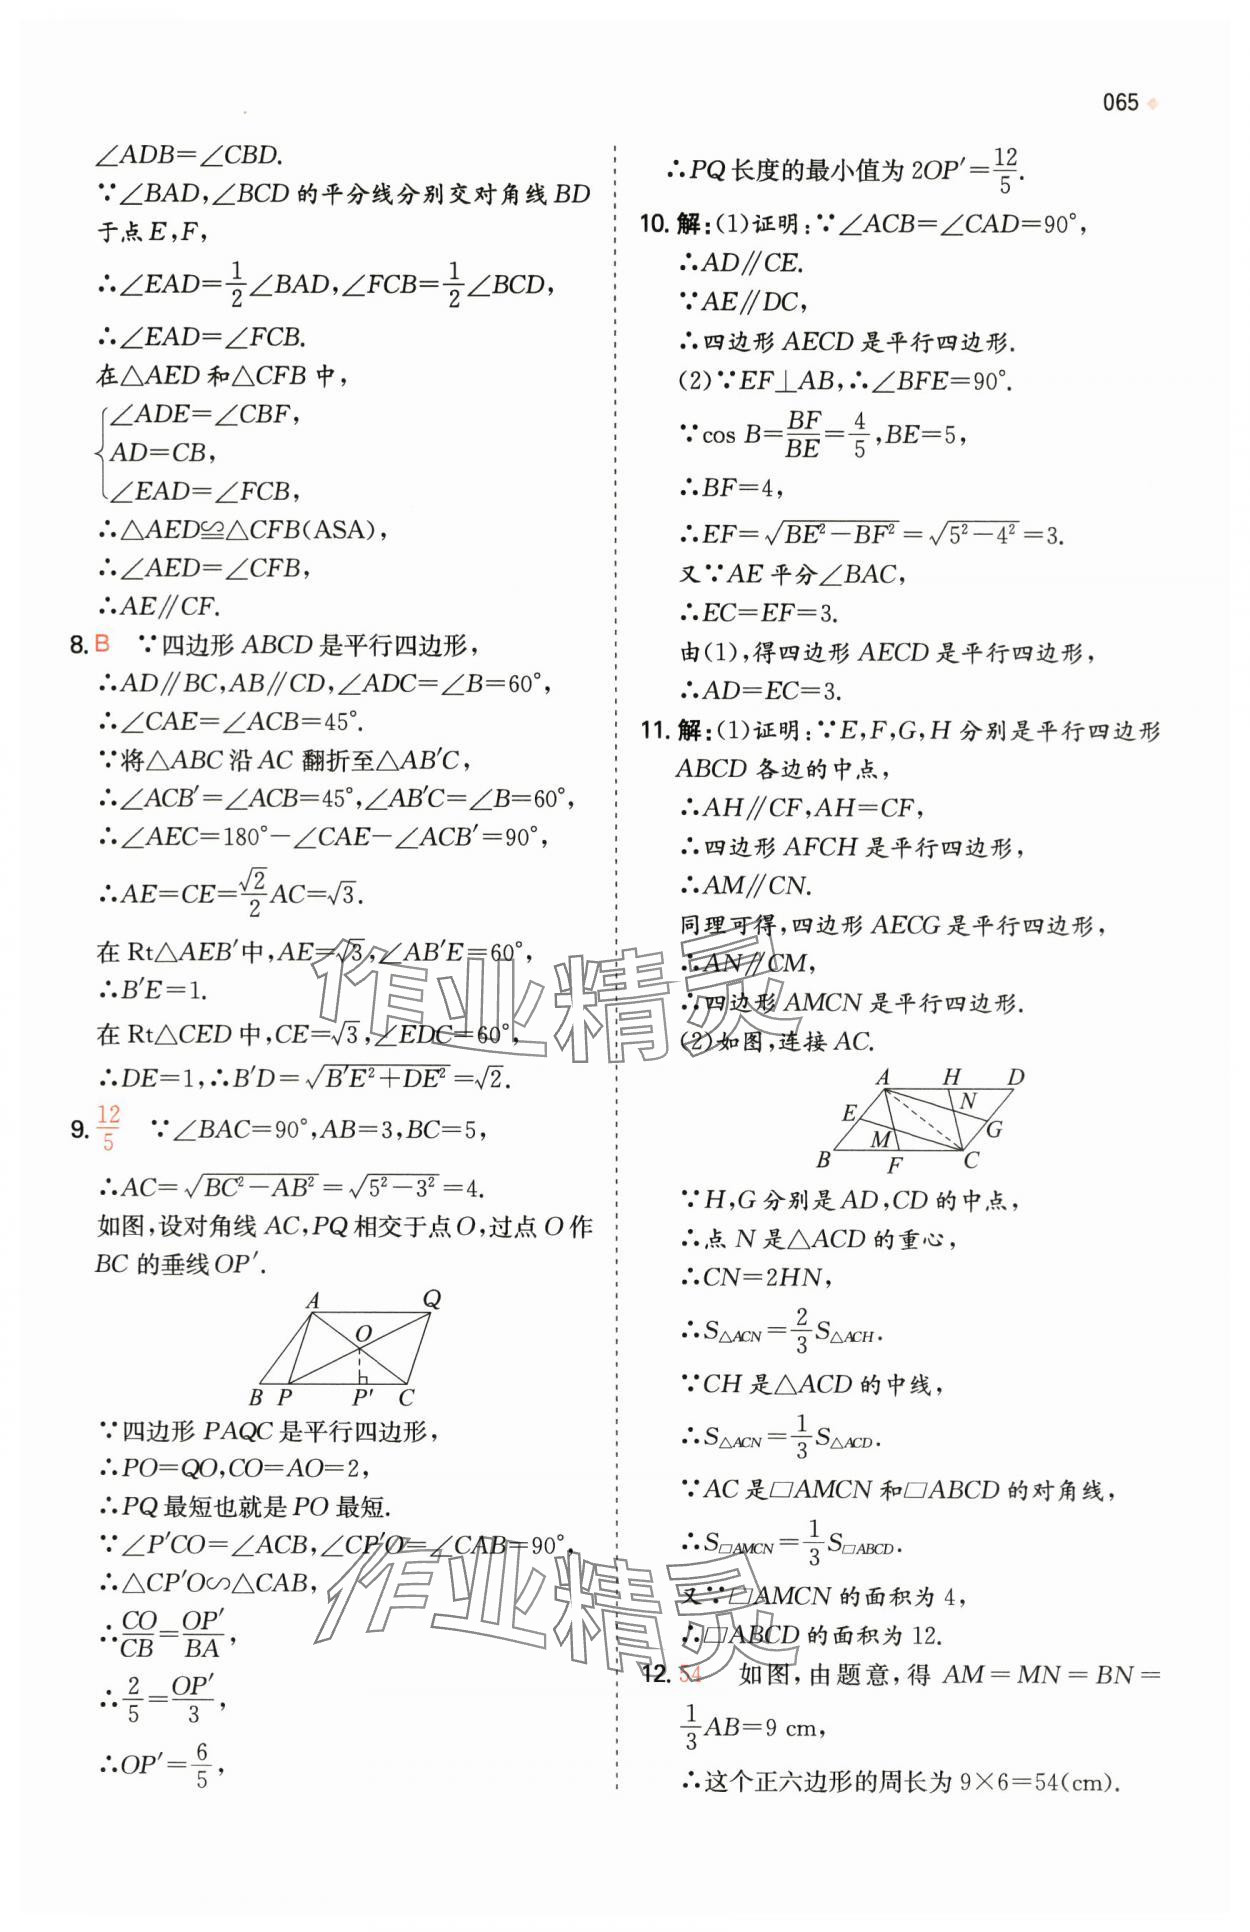 065
∠ADB=∠CBD.
∵∠BAD,∠BCD的平分线分别交对角线BD
于点E,F,
∴∠EAD=1/2∠BAD,∠FCB=1/2∠BCD,
∴∠EAD=∠FCB.
在△AED和△CFB中,
∠ADE=∠CBF,
AD=CB,
∠EAD=∠FCB,
∴△AED≌△CFB(ASA),
∴∠AED=∠CFB,
∴AE∥CF.
8. B ∵四边形ABCD是平行四边形,
∴AD∥BC,AB∥CD,∠ADC=∠B=60°,
∴∠CAE=∠ACB=45°.
∵将△ABC沿AC翻折至△AB′C,
∴∠ACB′=∠ACB=45°,∠AB′C=∠B=60°,
∴∠AEC=180°−∠CAE−∠ACB′=90°,
∴AE=CE=√2/2AC=√3.
在Rt△AEB′中,AE=√3,∠AB′E=60°,
∴B′E=1.
在Rt△CED中,CE=√3,∠EDC=60°,
∴DE=1,∴B′D=√(B′E²+DE²)=√2.
9. 12/5 ∵∠BAC=90°,AB=3,BC=5,
∴AC=√(BC²−AB²)=√(5²−3²)=4.
如图,设对角线AC,PQ相交于点O,过点O作
BC的垂线OP′.
A Q
O
B P P′ C
∵四边形PAQC是平行四边形,
∴PO=QO,CO=AO=2,
∴PQ最短也就是PO最短.
∵∠P′CO=∠ACB,∠CP′O=∠CAB=90°,
∴△CP′O∽△CAB,
∴CO/CB=OP′/BA,
∴2/5=OP′/3,
∴OP′=6/5,
∴PQ长度的最小值为2OP′=12/5.
10. 解:(1)证明:∵∠ACB=∠CAD=90°,
∴AD∥CE.
∵AE∥DC,
∴四边形AECD是平行四边形.
(2)∵EF⊥AB,∴∠BFE=90°.
∵cos B=BF/BE=4/5,BE=5,
∴BF=4,
∴EF=√(BE²−BF²)=√(5²−4²)=3.
又∵AE平分∠BAC,
∴EC=EF=3.
由(1),得四边形AECD是平行四边形,
∴AD=EC=3.
11. 解:(1)证明:∵E,F,G,H分别是平行四边形
ABCD各边的中点,
∴AH∥CF,AH=CF,
∴四边形AFCH是平行四边形,
∴AM∥CN.
同理可得,四边形AECG是平行四边形,
∴AN∥CM,
∴四边形AMCN是平行四边形.
(2)如图,连接AC.
A H D
E N
M G
B F C
∵H,G分别是AD,CD的中点,
∴点N是△ACD的重心,
∴CN=2HN,
∴S△ACN=2/3S△ACH.
∵CH是△ACD的中线,
∴S△ACN=1/3S△ACD.
∵AC是□AMCN和□ABCD的对角线,
∴S□AMCN=1/3S□ABCD.
又∵□AMCN的面积为4,
∴□ABCD的面积为12.
12. 54 如图,由题意,得AM=MN=BN=
1/3AB=9 cm,
∴这个正六边形的周长为9×6=54(cm).
作业精灵
作业精灵